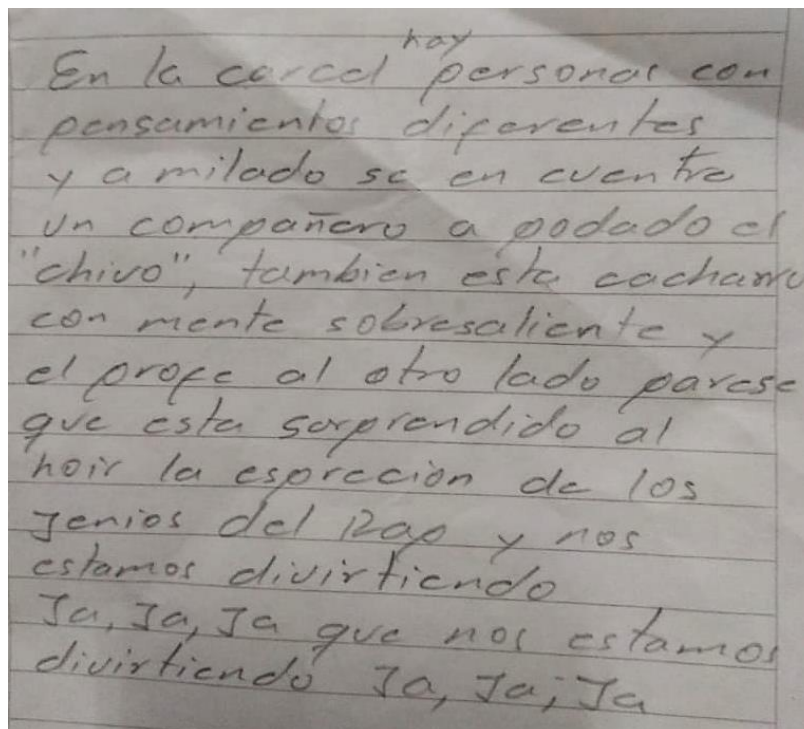 En la carcel hay personas con
pensamientos diferentes
y a milado se en cuentra
un compañero a podado el
"chivo", tambien esta cacharro
con mente sobresaliente y
el profe al otro lado parese
que esta sorprendido al
hoir la esprecion de los
Jenios del Rap y nos
estamos divirtiendo
Ja, Ja, Ja que nos estamos
divirtiendo Ja, Ja, Ja